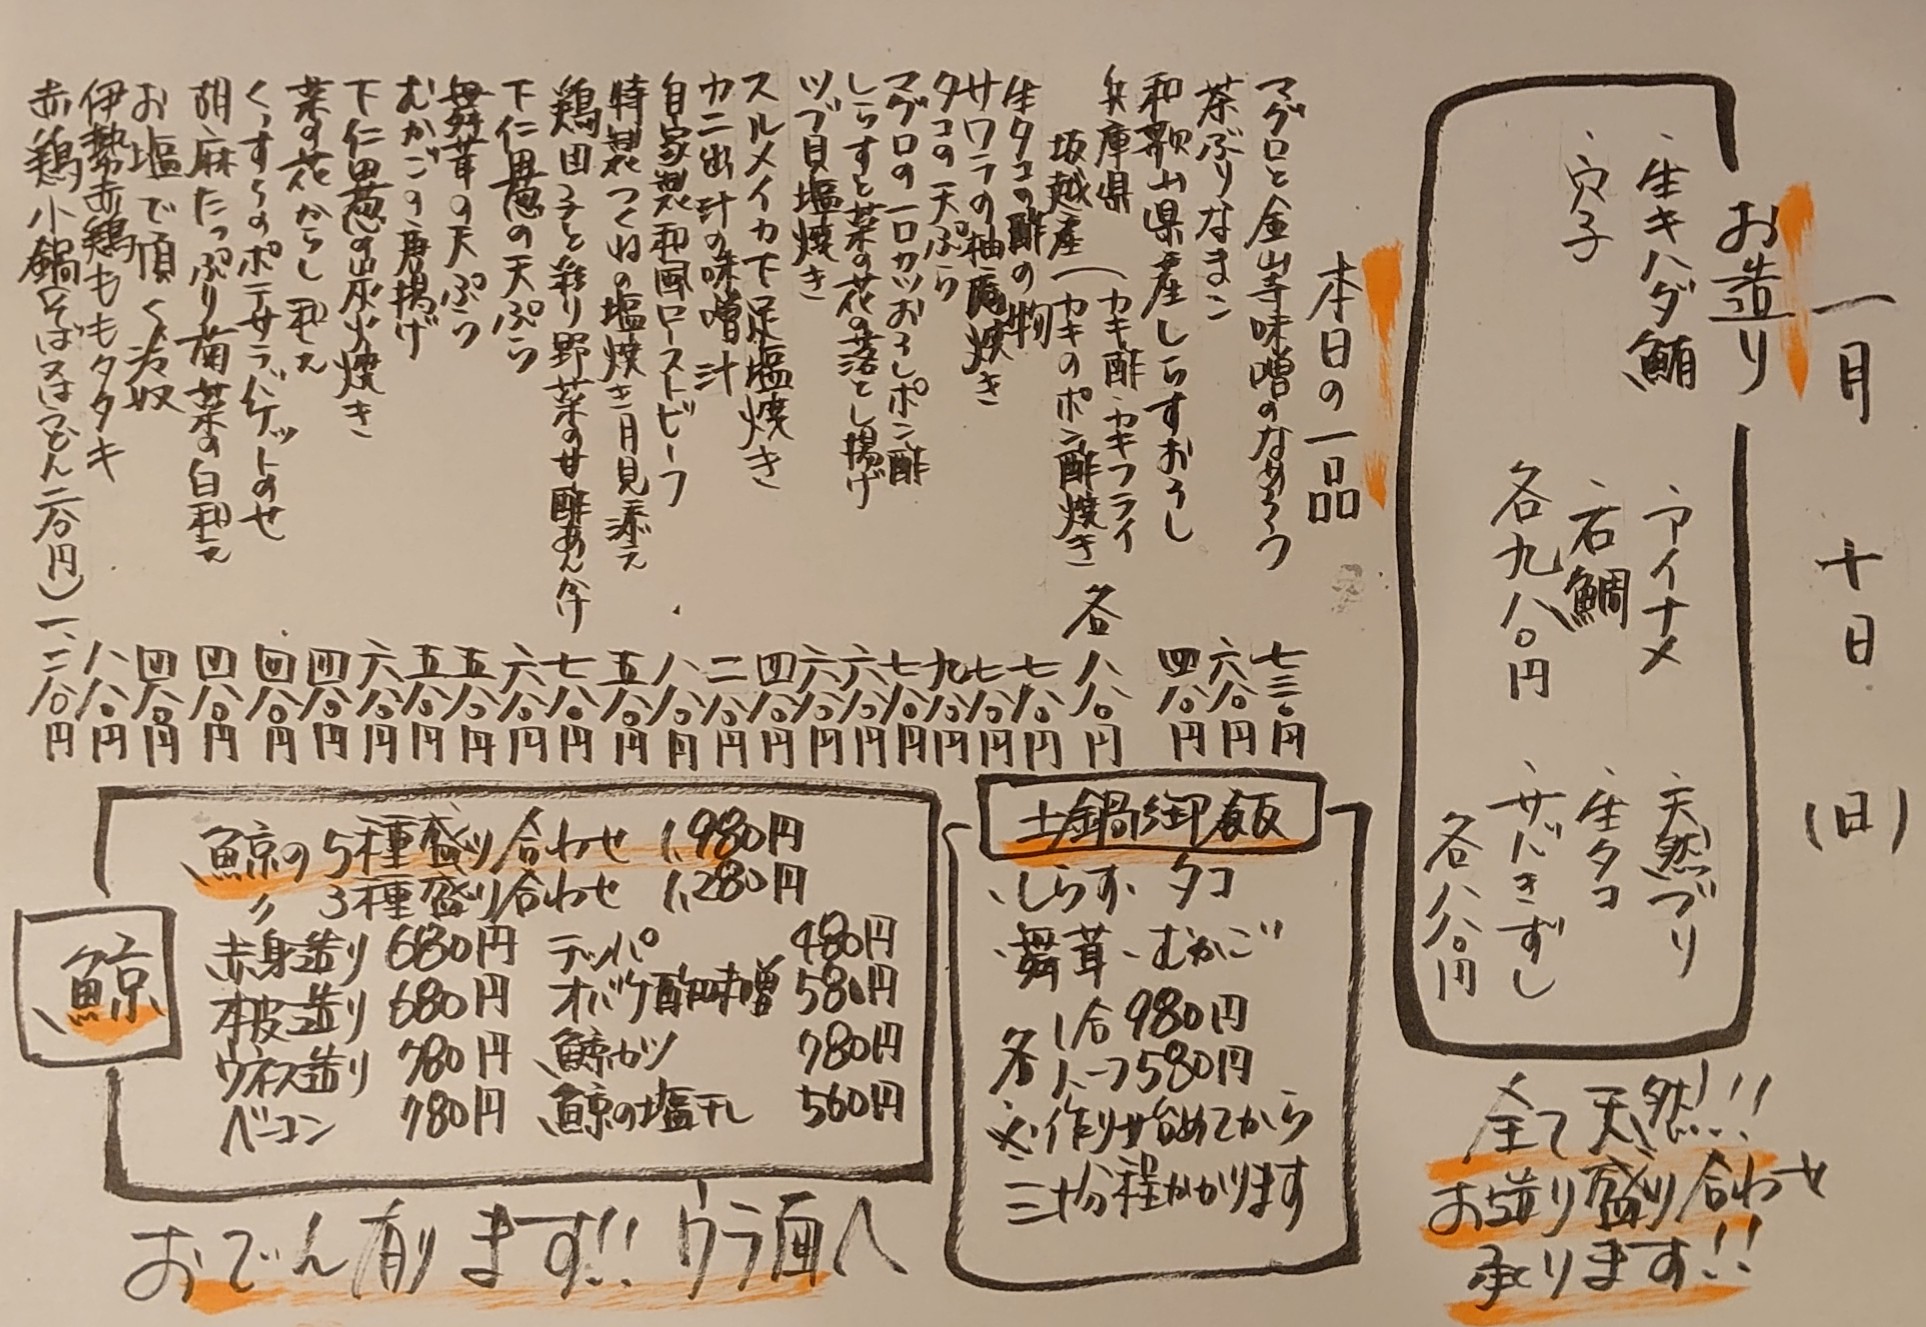 一月 十日 (日)
お造り
・生キハダ鮪 ・アイナメ ・天然ブリ
・穴子 ・石鯛 ・生タコ
各九八〇円 ・サバきずし
各八八〇円
全て天然!!!
お造り盛り合わせ
承ります!!
本日の一品
マグロと金山寺味噌のなめろう 七三〇円
茶ぶりなまこ 六八〇円
和歌山県産しらすおろし 四八〇円
兵庫県 坂越産 (カキ酢・カキフライ
カキのポン酢焼き 各 八八〇円
生タコの酢の物 七八〇円
サワラの柚庵焼き 七八〇円
タコの天ぷら 九八〇円
マグロの一口カツおろしポン酢 七八〇円
しらすと菜の花の落とし揚げ 六八〇円
ツブ貝塩焼き 六八〇円
スルメイカ下足塩焼き 四八〇円
カニ出汁の味噌汁 二八〇円
自家製和風ローストビーフ 八八〇円
特製つくねの塩焼き月見添え 五八〇円
鶏団子と彩り野菜の甘酢あんかけ 七八〇円
下仁田葱の天ぷら 六八〇円
舞茸の天ぷら 五八〇円
むかごの唐揚げ 五八〇円
下仁田葱の炭火焼き 六八〇円
菜の花からし和え 四八〇円
くんすらのポテサラバケットのせ 四八〇円
胡麻たっぷり菊菜の白和え 四八〇円
お塩で頂く冷奴 四八〇円
伊勢赤鶏ももタタキ 八八〇円
赤鶏小鍋(そば又はうどん二八〇円) 一、二八〇円
土鍋御飯
・しらす・タコ
・舞茸・むかご
各 1合 980円
ハーフ 580円
※作り始めてから
三十分程かかります
鯨
鯨の5種盛り合わせ 1,980円
〃 3種盛り合わせ 1,280円
赤身造り 680円 テッパ 480円
本皮造り 680円 オバケ酢味噌 580円
ウネス造り 780円 鯨カツ 780円
ベーコン 780円 鯨の塩干し 560円
おでん有ります!! ウラ面へ